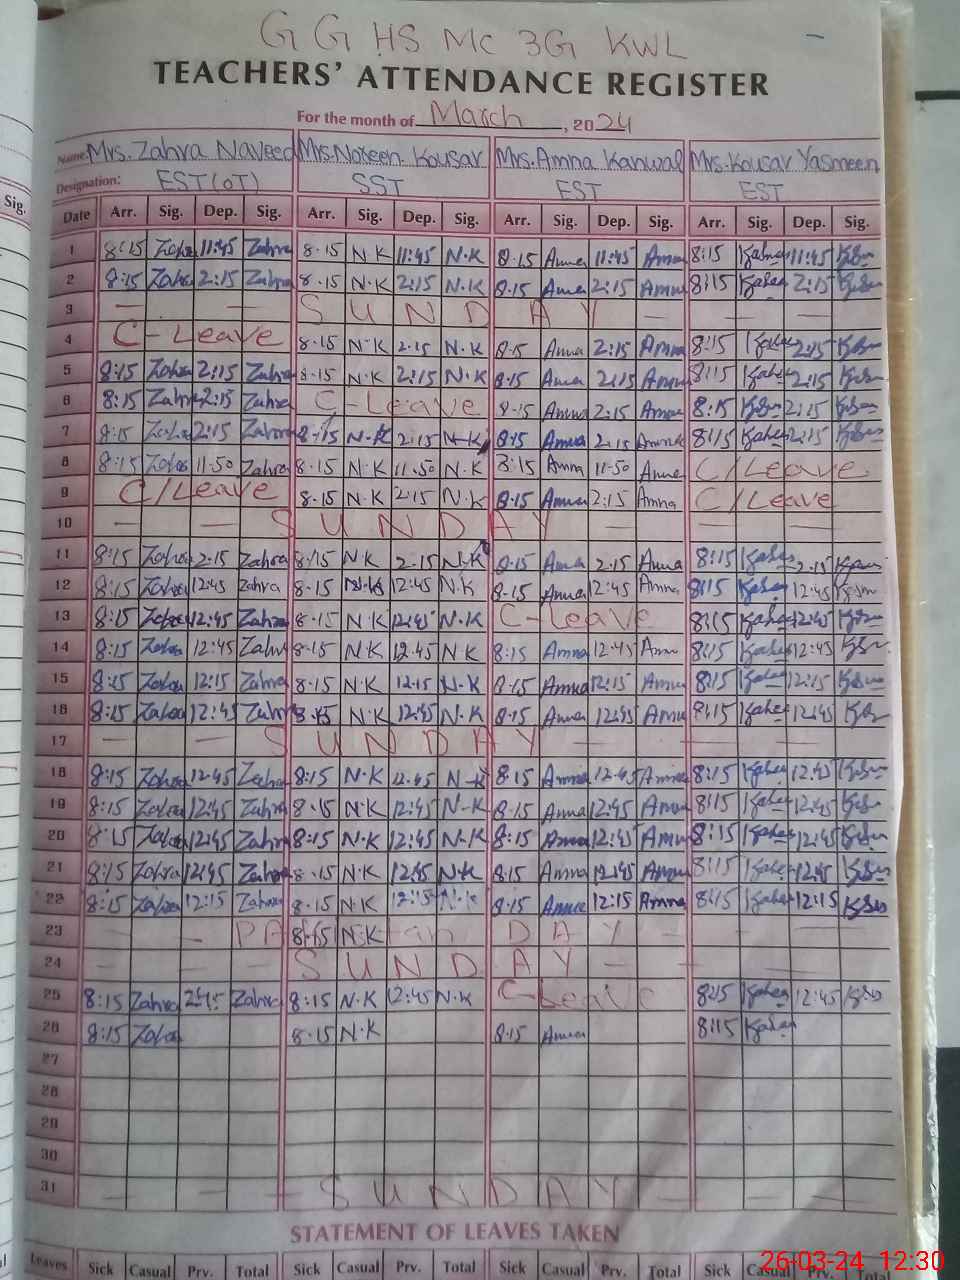 G G HS MC 3G KWL
TEACHERS' ATTENDANCE REGISTER
For the month of March, 2024
Name: Mrs. Zahra Naveed Mrs. Noreen Kousar Mrs. Amna Kanwal Mrs. Kousar Yasmeen
Designation: EST(OT) SST EST EST
Sig.
Date Arr. Sig. Dep. Sig. Arr. Sig. Dep. Sig. Arr. Sig. Dep. Sig. Arr. Sig. Dep. Sig.
1 8:15 Zahra 11:45 Zahra 8-15 N.K 11:45 N.K 8-15 Amna 11:45 Amna 8:15 11:45
2 8:15 Zahra 2:15 Zahra 8-15 N.K 2:15 N.K 8-15 Amna 2:15 Amna 8:15 2:15
3 — — S U N D A Y — — —
4 C-Leave 8-15 N-K 2-15 N-K 8-15 Amna 2:15 Amna 8:15 2:15
5 8:15 Zahra 2:15 Zahra 8-15 N.K 2:15 N.K 8-15 Amna 2:15 Amna 8:15 2:15
6 8:15 Zahra 2:15 Zahra C-Leave 8-15 Amna 2:15 Amna 8:15 2:15
7 8:15 Zahra 2:15 Zahra 8-15 N-K 2:15 N-K 8:15 Amna 2:15 Amna 8:15 2:15
8 8:15 Zahra 11-50 Zahra 8-15 N.K 11.50 N.K 8:15 Amna 11-50 Amna C/Leave
9 C/Leave 8-15 N.K 2:15 N.K 8-15 Amna 2:15 Amna C/Leave
10 — — S U N D A Y — — —
11 8:15 Zahra 2-15 Zahra 8:15 N.K 2-15 N.K 8-15 Amna 2:15 Amna 8:15 2:15
12 8:15 Zahra 12:45 Zahra 8-15 N.K 12:45 N.K 8-15 Amna 12:45 Amna 8:15 12:45
13 8:15 Zahra 12:45 Zahra 8-15 N.K 12:45 N.K C-Leave 8:15 12:45
14 8:15 Zahra 12:45 Zahra 8-15 N.K 12.45 N.K 8:15 Amna 12:45 Amna 8:15 12:45
15 8:15 Zahra 12:15 Zahra 8-15 N.K 12.15 N-K 8-15 Amna 12:15 Amna 8:15 12:15
16 8:15 Zahra 12:45 Zahra 8-15 N.K 12:45 N.K 8-15 Amna 12:45 Amna 8:15 12:45
17 — — S U N D A Y — — — —
18 8:15 Zahra 12:45 Zahra 8:15 N.K 12.45 N-K 8:15 Amna 12:45 Amna 8:15 12:45
19 8:15 Zahra 12:45 Zahra 8-15 N.K 12:45 N-K 8-15 Amna 12:45 Amna 8:15 12:45
20 8:15 Zahra 12:45 Zahra 8:15 N.K 12:45 N-K 8:15 Amna 12:45 Amna 8:15 12:45
21 8:15 Zahra 12:45 Zahra 8-15 N.K 12:45 N.K 8:15 Amna 12:45 Amna 8:15 12:45
22 8:15 Zahra 12:15 Zahra 8-15 N.K 12:15 N.K 8:15 Amna 12:15 Amna 8:15 12:15
23 8:15 N.K D A Y
24 — — S U N D A Y — — —
25 8:15 Zahra Zahra 8:15 N.K 12:45 N.K C-Leave 8:15 12:45
26 8:15 Zahra 8:15 N.K 8-15 Amna 8:15
27
28
29
30
31 — — S U N D A Y — — —
STATEMENT OF LEAVES TAKEN
Leaves Sick Casual Prv. Total Sick Casual Prv. Total Sick Casual Prv. Total Sick Casual Prv. Total
26-03-24 12:30